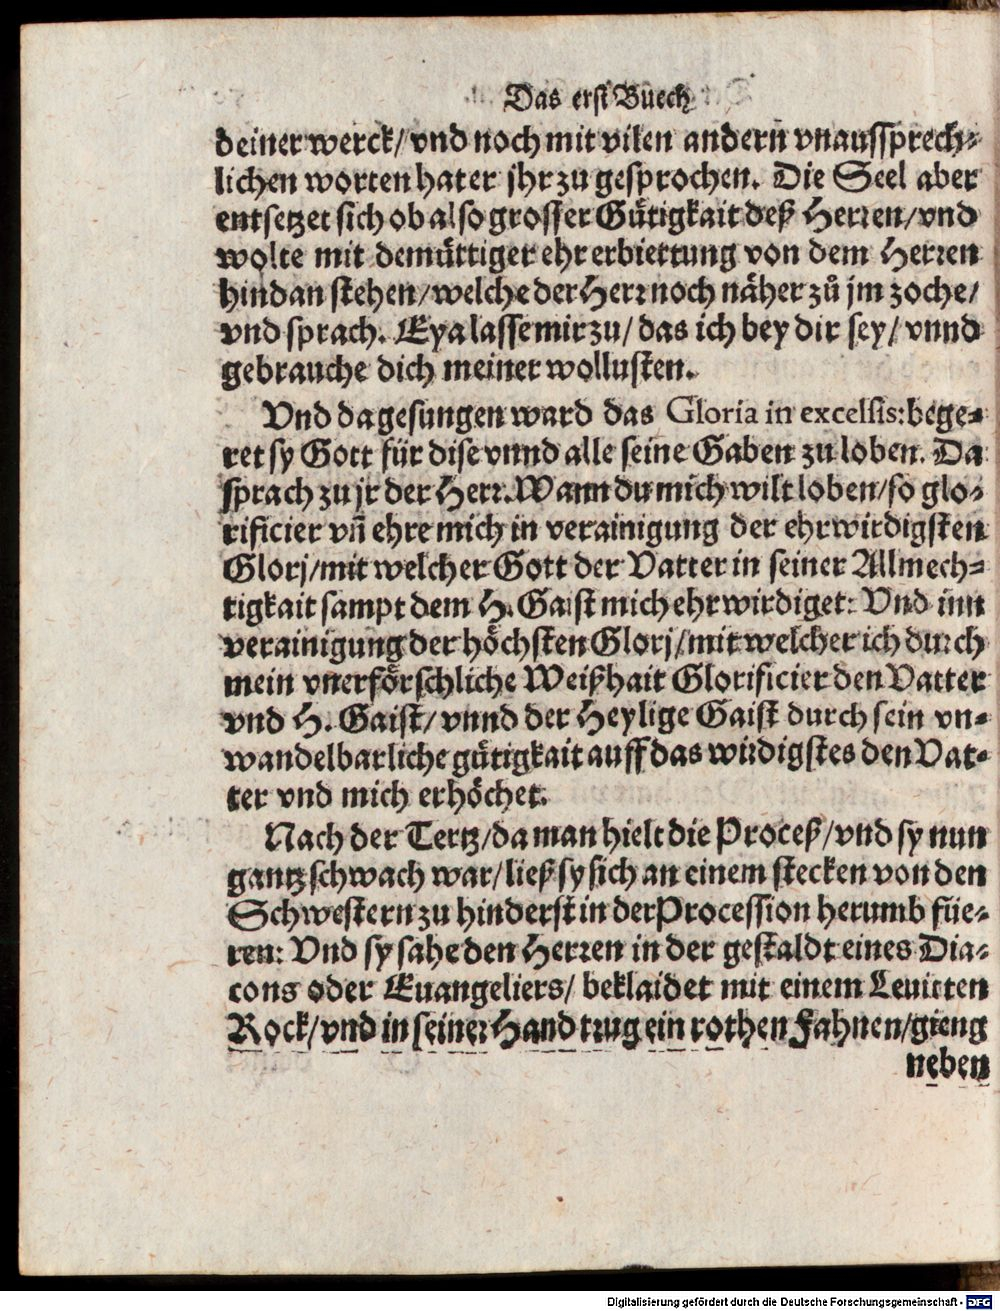 Das erst Buech
deiner werck/ vnd noch mit vilen andern vnaussprech-
lichen worten hat er jhr zu gesprochen. Die Seel aber
entsetzet sich ob also grosser Gütigkait deß Herren/ vnd
wolte mit demüttiger ehrerbiettung von dem Herren
hindan stehen/ welche der Herr noch näher zů jm zoche/
vnd sprach. Eya lasse mir zu/ das ich bey dir sey/ vnnd
gebrauche dich meiner wollusten.
Vnd da gesungen ward das Gloria in excelsis: bege-
ret sy Gott für dise vnnd alle seine Gaben zu loben. Da
sprach zu jr der Herr. Wann du mich wilt loben/ so glo-
rificier vñ ehre mich in verainigung der ehrwirdigsten
Glorj/ mit welcher Gott der Vatter in seiner Allmech-
tigkait sampt dem H. Gaist mich ehrwirdiget: Vnd inn
verainigung der höchsten Glorj/ mit welcher ich durch
mein vnerförschliche Weißhait Glorificier den Vatter
vnd H. Gaist/ vnnd der Heylige Gaist durch sein vn-
wandelbarliche gütigkait auff das wirdigstes den Vat-
ter vnd mich erhöchet.
Nach der Tertz/ da man hielt die Proceß/ vnd sy nun
gantz schwach war/ ließ sy sich an einem stecken von den
Schwestern zu hinderst in der Procession herumb füe-
ren: Vnd sy sahe den Herren in der gestaldt eines Dia-
cons oder Euangeliers/ beklaidet mit einem Leuitten
Rock/ vnd in seiner Hand trug ein rothen Fahnen/ gieng
neben
Digitalisierung gefördert durch die Deutsche Forschungsgemeinschaft - DFG